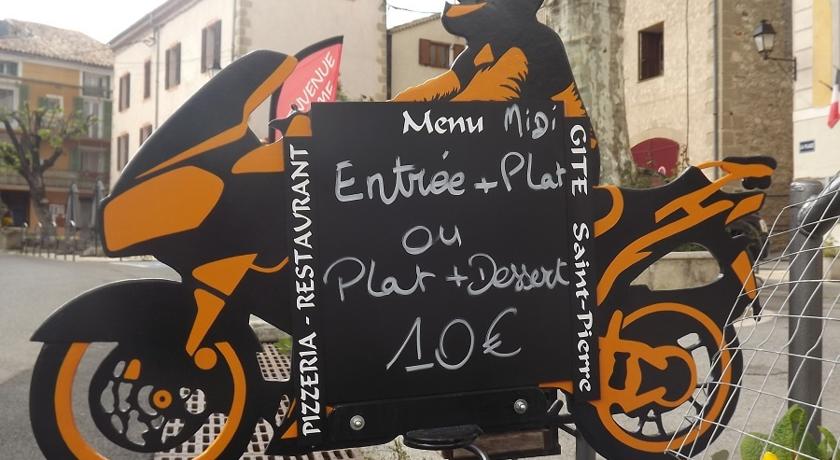 Menu Midi
Entrée + Plat
ou
Plat + Dessert
10€
PIZZERIA - RESTAURANT
GITE Saint-Pierre